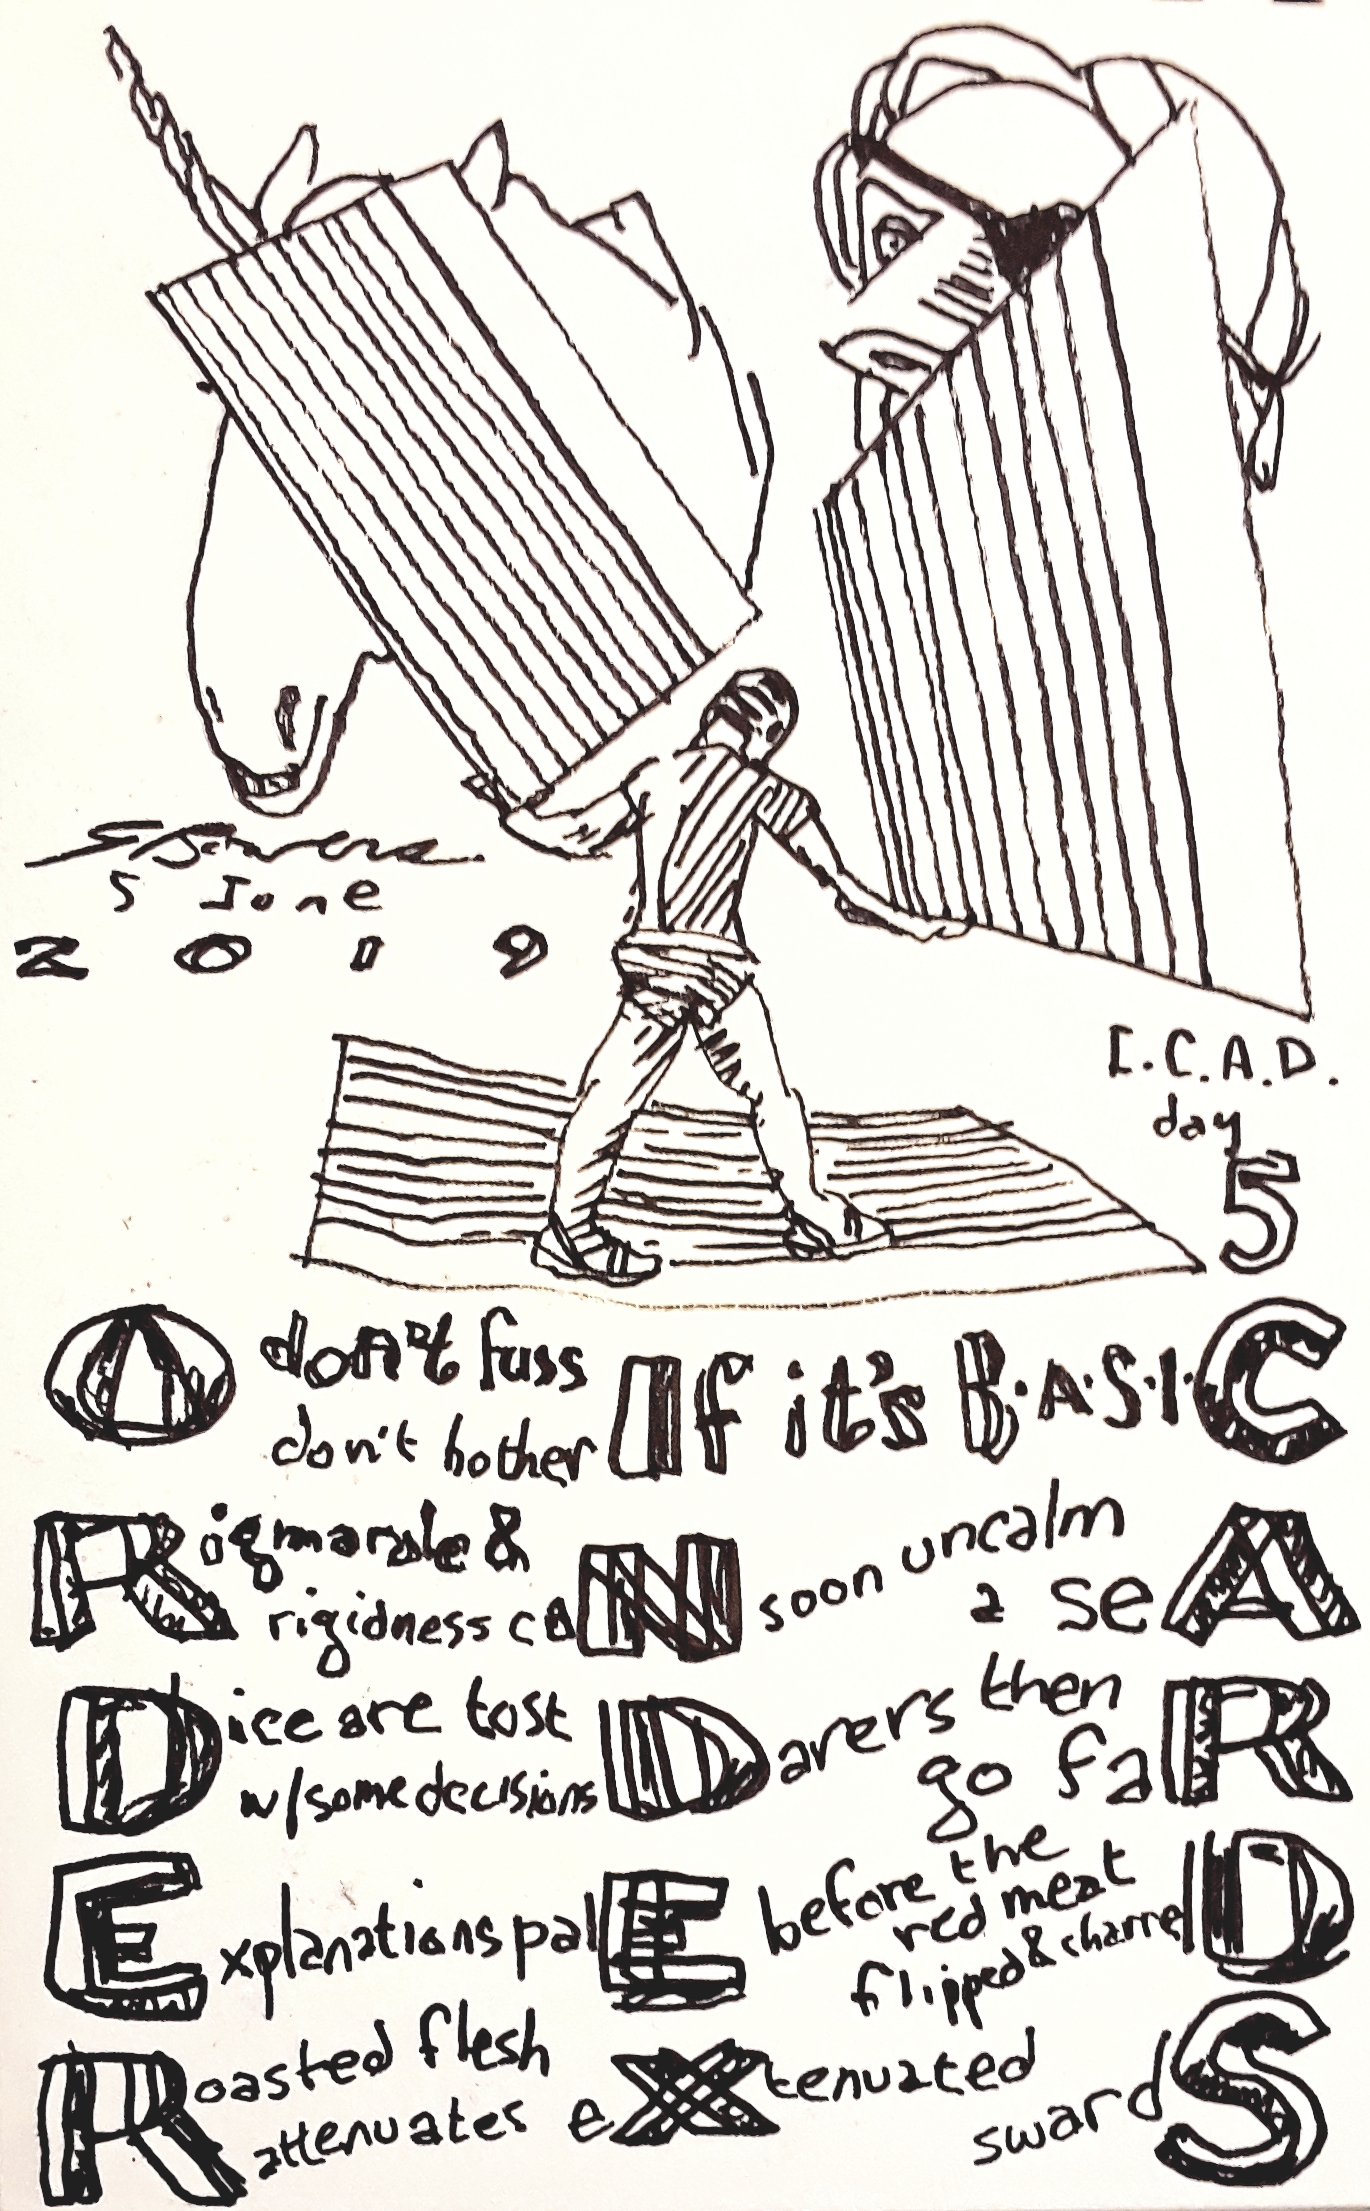 5 June
2019
I.C.A.D.
day
5
O don't fuss
don't bother If it's B.A.S.I.C
Rigmarole &
rigidness caN soon uncalm
a seA
Dice are tost
w/some decisions Darers then
go faR
Explanations palE before the
red meat
flipped & charreD
Roasted flesh
attenuates eXtenuated
swardS